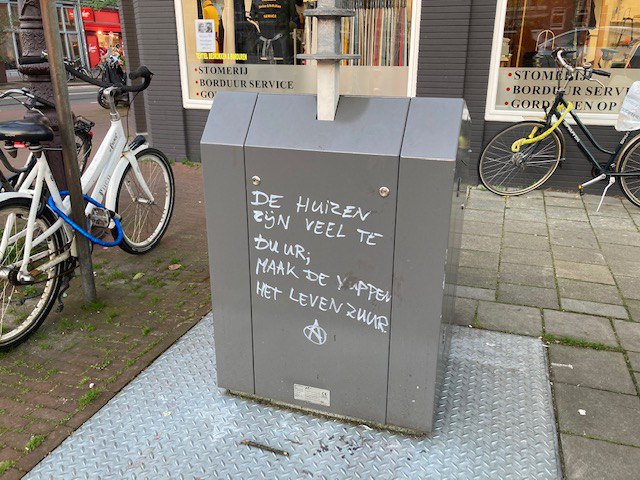 SERVICE
• STOMERIJ
• BORDUUR SERVICE
• STOMERIJ
BORDUUR SERV
GORDIJNEN OP
DE HUIZEN
ZIJN VEEL TE
DUUR;
MAAK DE YUPPEN
HET LEVEN ZUUR.